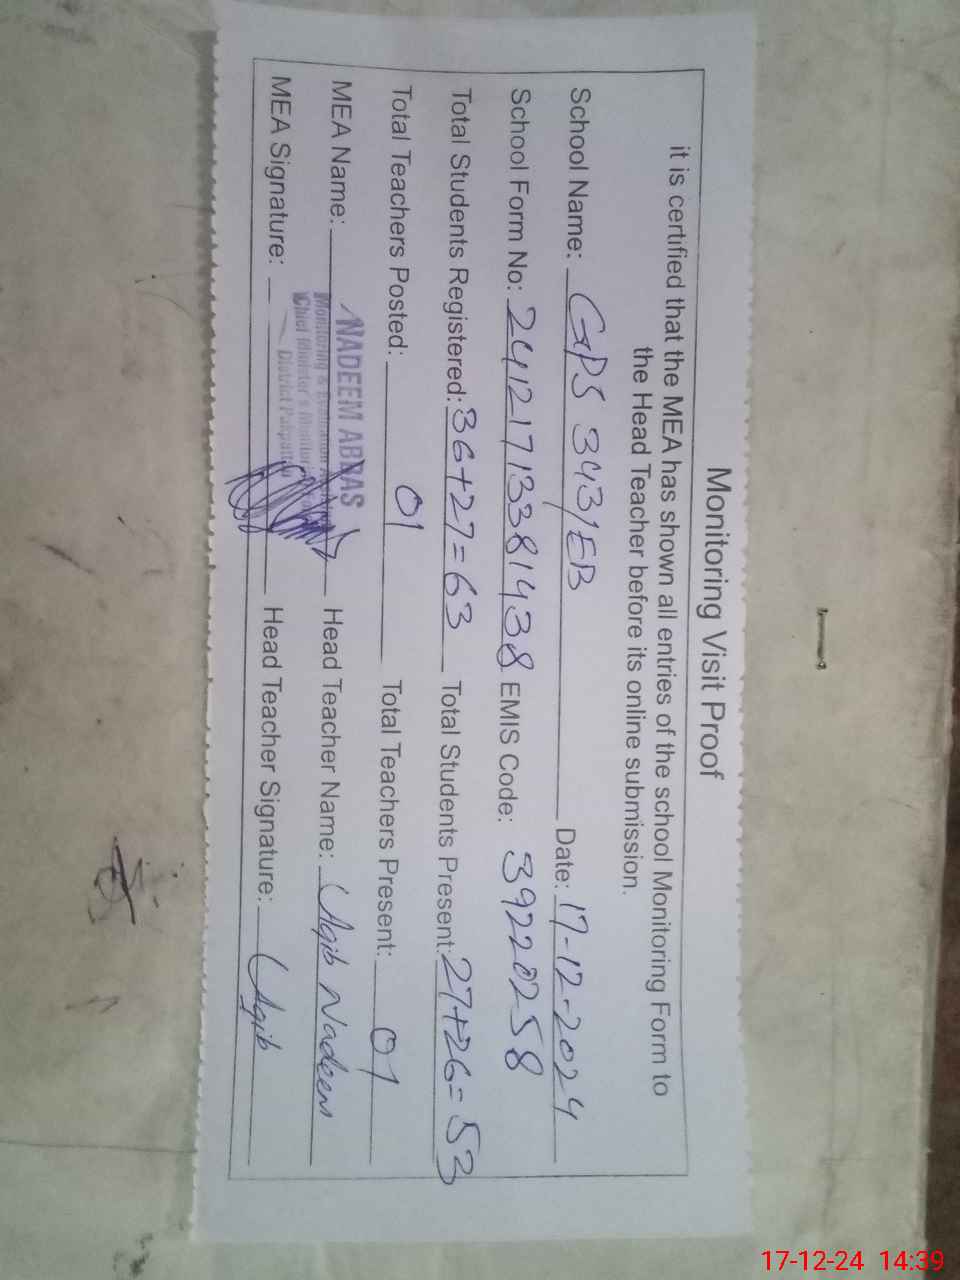 Monitoring Visit Proof
it is certified that the MEA has shown all entries of the school Monitoring Form to
the Head Teacher before its online submission.
School Name: GPS 343/EB Date: 17-12-2024
School Form No: 24121713381438 EMIS Code: 39220258
Total Students Registered: 36+27=63 Total Students Present: 27+26=53
Total Teachers Posted: 01 Total Teachers Present: 01
MEA Name: NADEEM ABBAS Head Teacher Name: Aqib Nadeem
Monitoring & Evaluation
Chief Minister's Monitoring
District Pakpattan
MEA Signature: Head Teacher Signature: Aqib
17-12-24 14:39